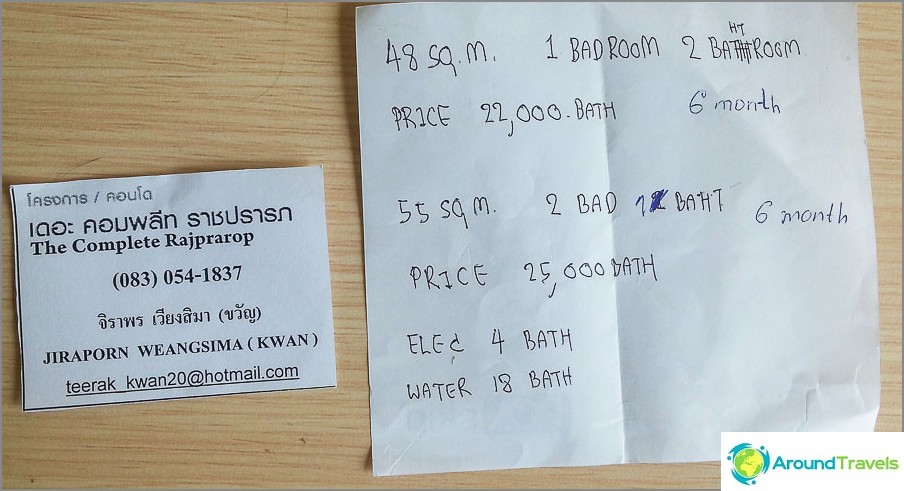 โครงการ / คอนโด
เดอะ คอมพลีท ราชปรารภ
The Complete Rajprarop
(083) 054-1837
จิราพร เวียงสิมา (ขวัญ)
JIRAPORN WEANGSIMA ( KWAN )
teerak_kwan20@hotmail.com
48 SQ.M. 1 BADROOM 2 BATHROOM
HT
PRICE 22,000.BATH 6 month
55 SQ M. 2 BAD 1 BAHT 6 month
PRICE 25,000 BATH
ELEC 4 BATH
WATER 18 BATH
AroundTravels